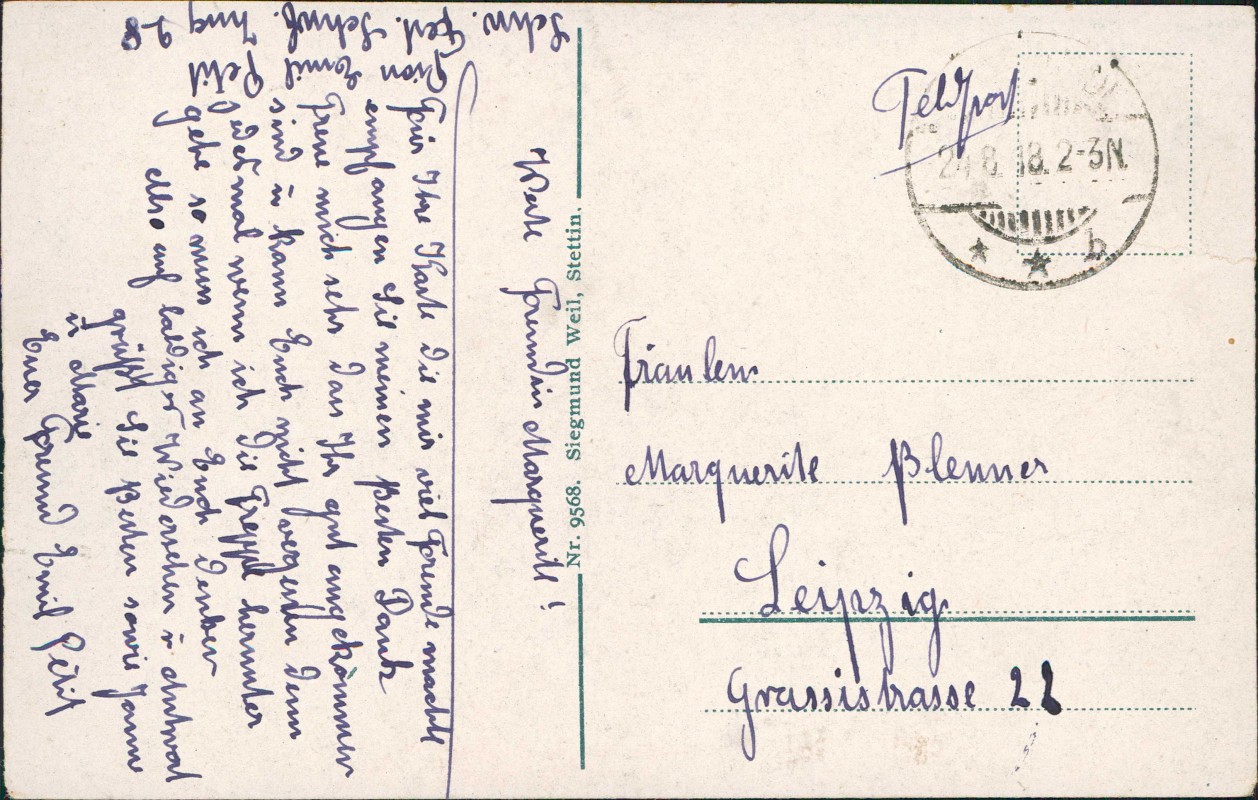 Feldpost
24.8.18. 2-3N.
b
Fräulein
Marguerite Blenner
Leipzig
Grassistrasse 22
Nr. 9568. Siegmund Weil, Stettin.
Werte Freundin Marguerite!
Für Ihre Karte die mir viel Freude machte
empfangen Sie meinen Besten Dank
Freue mich sehr das Ihr gut angekommen
sind u kann Euch nicht vergessen denn
jedesmal wenn ich die Treppe herunter
gehe so muss ich an Euch denken
Also auf baldiges Wiedersehen u
grüsst Sie Besten sowie Janne
u Marie
Euer Freund Emil Petit
Schw. Fest.
Emil Petit